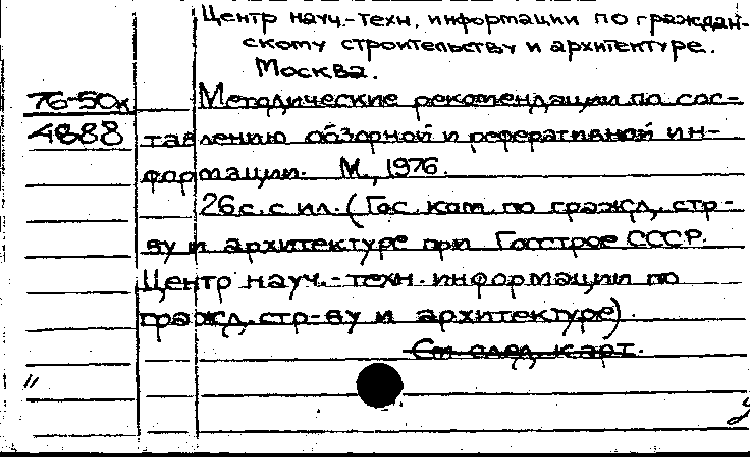 Центр науч.-техн. информации по граждан-
скому строительству и архитектуре.
Москва.
76-50к
4888
Методические рекомендации по сос-
тавлению обзорной и реферативной ин-
формации. М., 1976.
26 с. с ил. (Гос. ком. по гражд. стр-
ву и архитектуре при Госстрое СССР.
Центр науч.-техн. информации по
гражд. стр-ву и архитектуре).
См. след. карт.